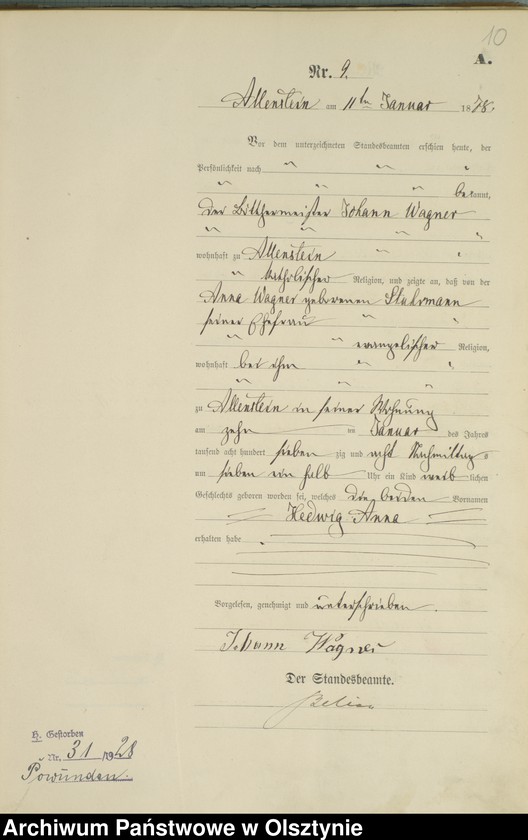 10
A.
Nr. 9.
Allenstein am 11ten Januar 1878.
Vor dem unterzeichneten Standesbeamten erschien heute, der
Persönlichkeit nach
bekannt,
der Böttchermeister Johann Wagner
wohnhaft zu Allenstein
katholischer Religion, und zeigte an, daß von der
Anna Wagner geborenen Stuhrmann
seiner Ehefrau
evangelischer Religion,
wohnhaft bei ihm
zu Allenstein in seiner Wohnung
am zehn ten Januar des Jahres
tausend acht hundert sieben zig und acht Nachmittags
um sieben ein halb Uhr ein Kind weib lichen
Geschlechts geboren worden sei, welches die beiden Vornamen
Hedwig Anna
erhalten habe.
Vorgelesen, genehmigt und unterschrieben.
Johann Wagner
Der Standesbeamte.
H. Gestorben
Nr. 31 /1928
Powunden.
Archiwum Państwowe w Olsztynie